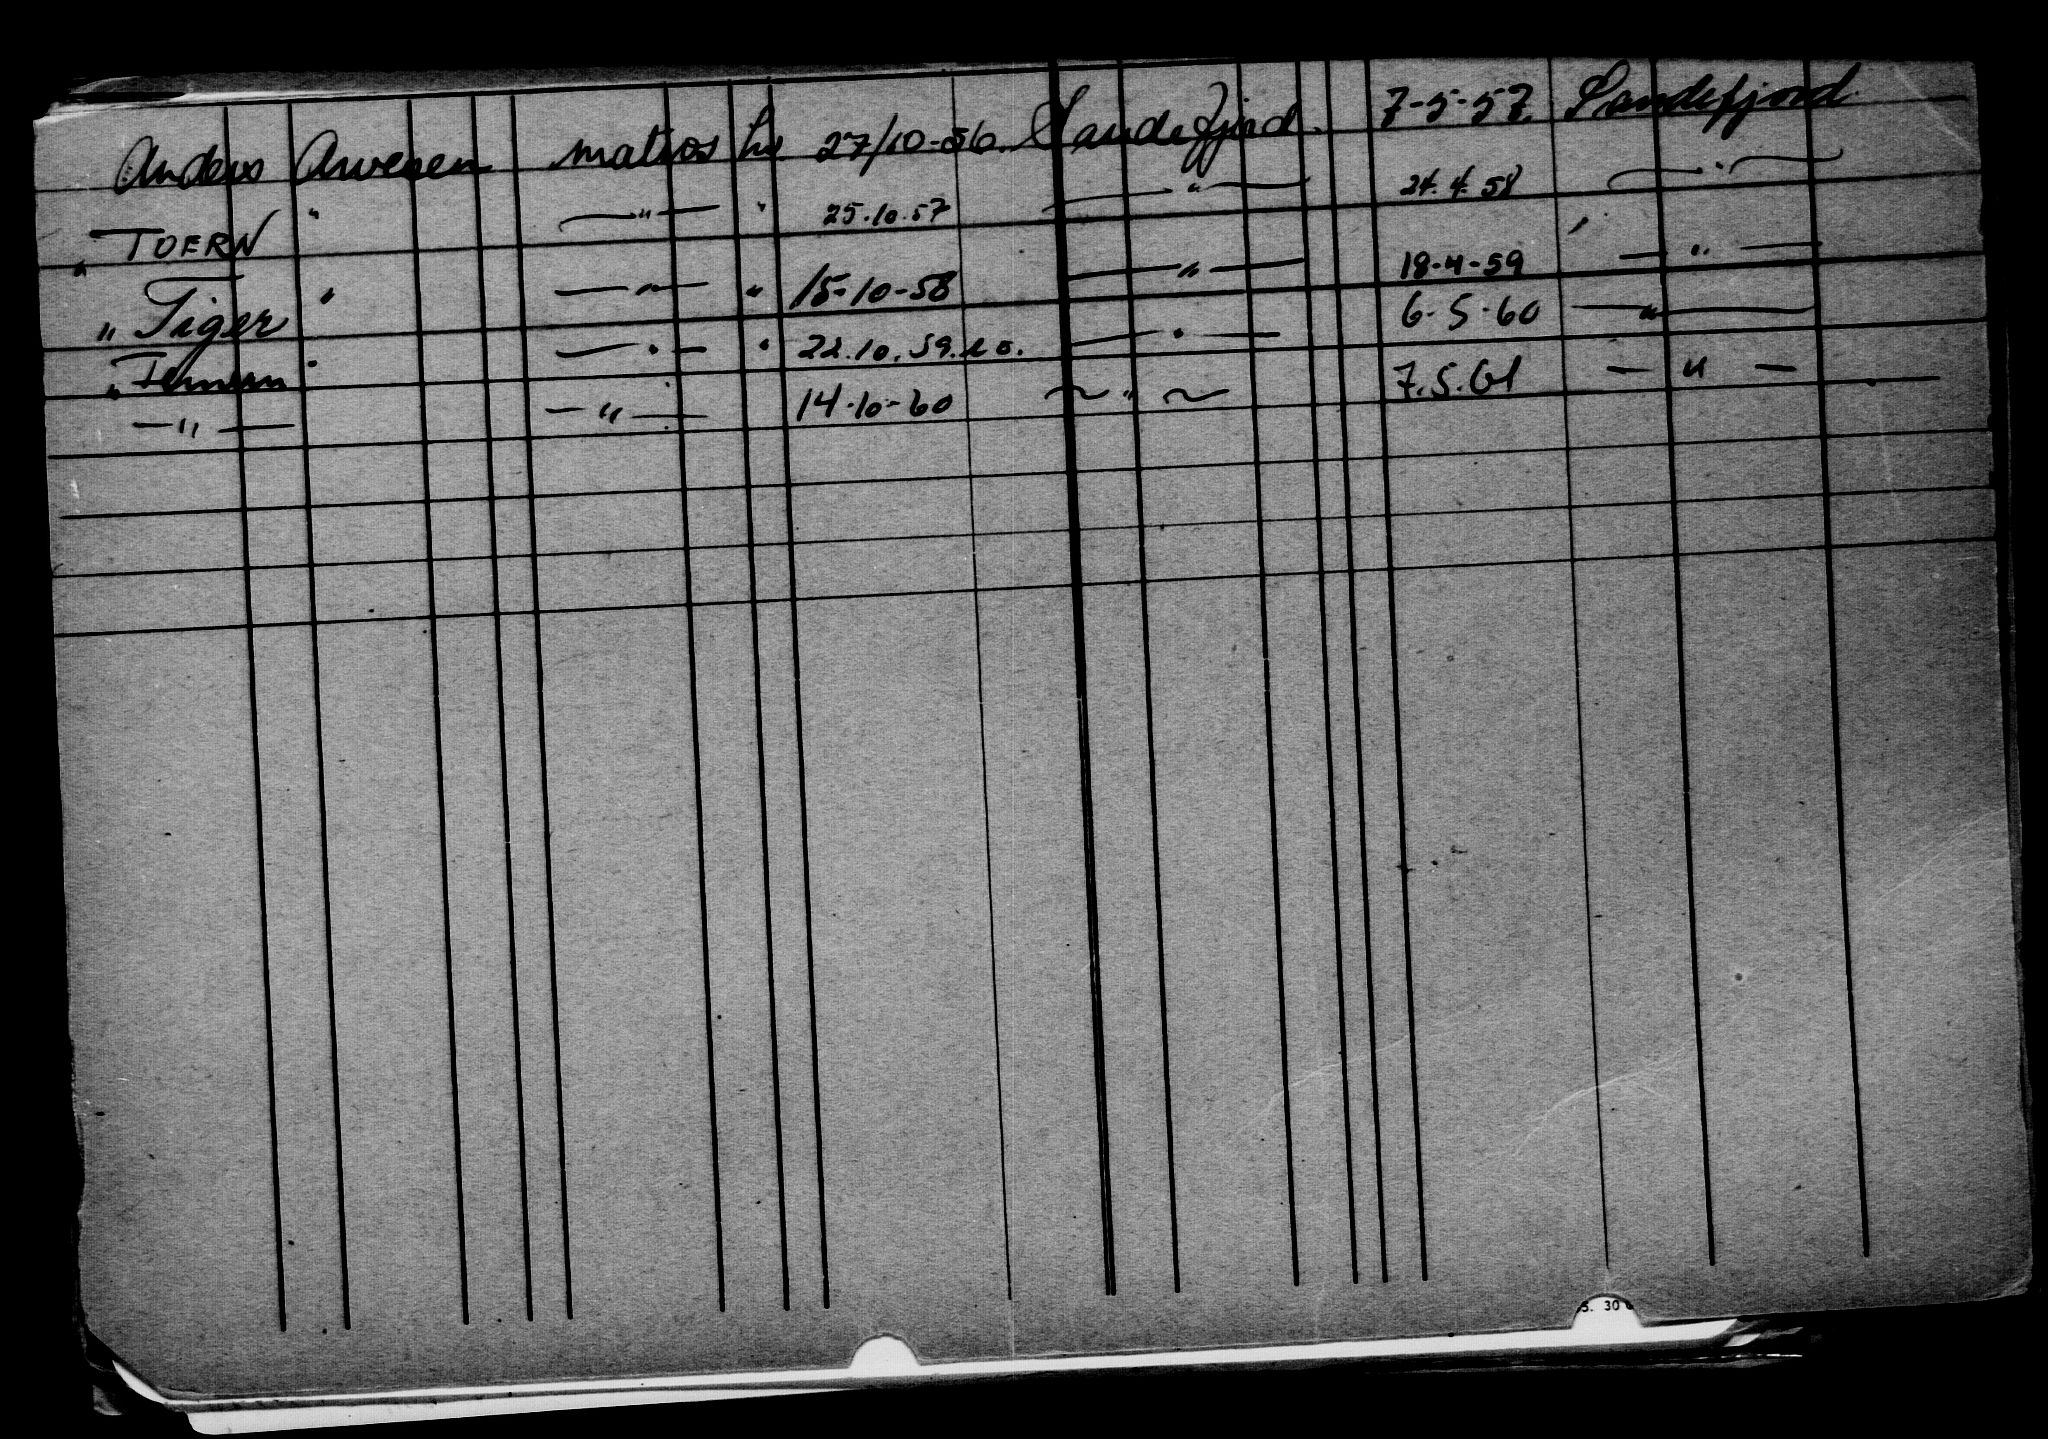 Anders Arvesen matros hv 27/10-56. Sandefjord. 7-5-57. Sandefjord.
TOERN " —"— " 25.10.57 —"— 24.4.58 —"—
" Tiger " —"— " 15-10-58 —"— 18-4-59 —"—
" Ternen " —"— " 22.10.59. —"— 6-5-60 —"—
—"— —"— 14-10-60 ~"~ 7.5.61 —"—
S. 30